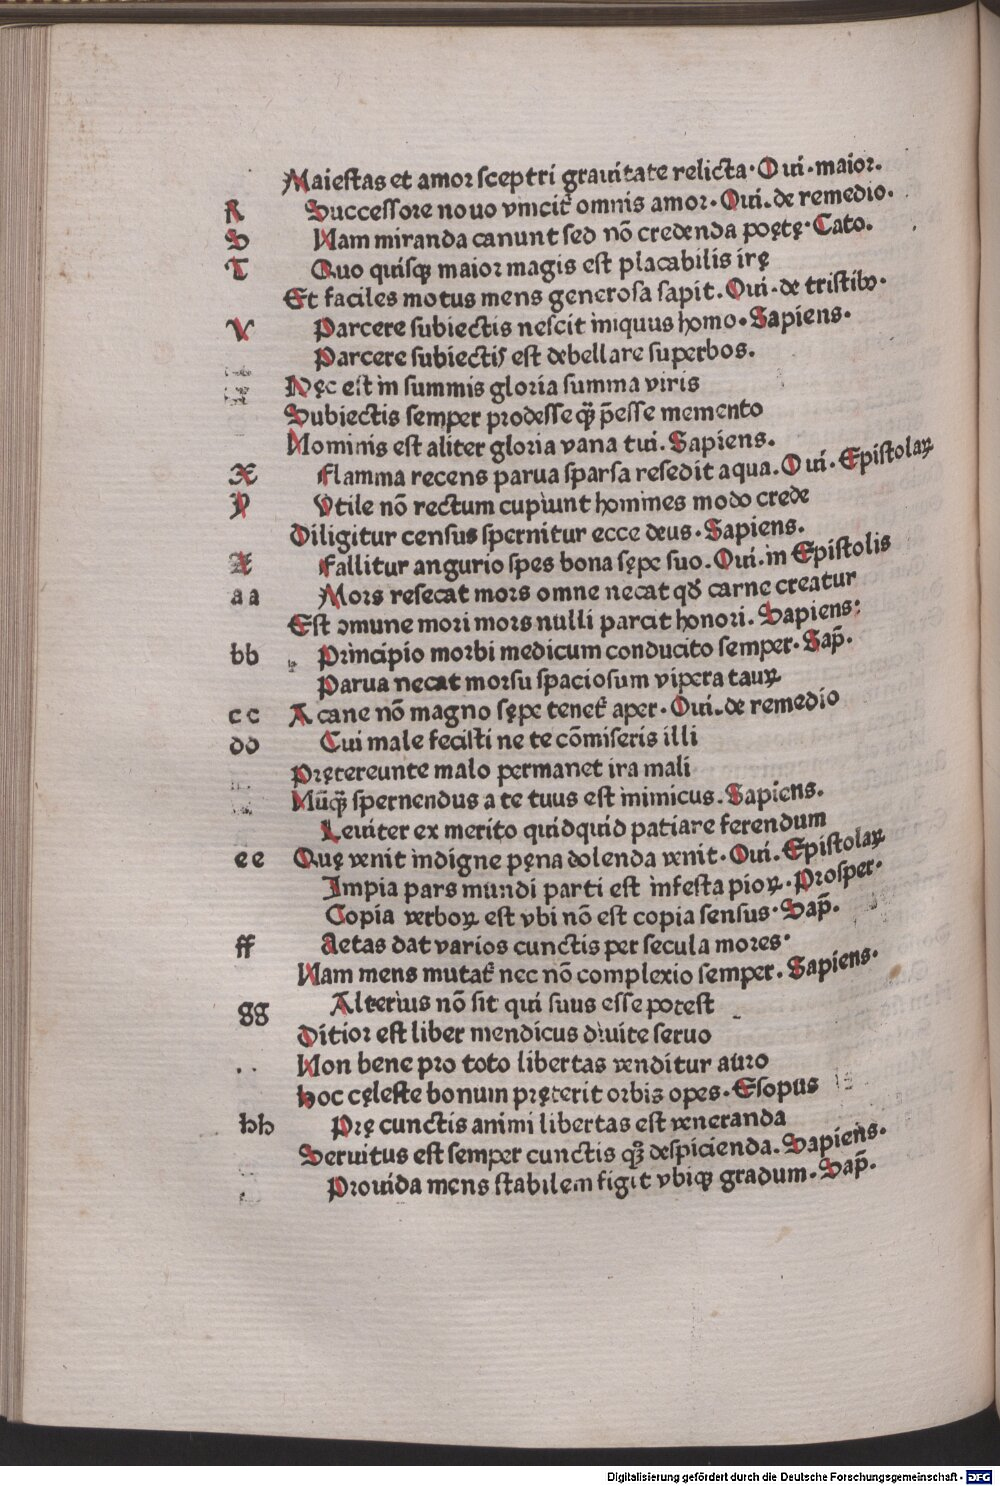 Maiestas et amor sceptri grauitate relicta. Oui. maior.
R Successore nouo vincit᷑ omnis amor. Oui. de remedio.
S Nam miranda canunt sed nō credenda poętę. Cato.
T Quo quisqꝫ maior magis est placabilis irę
Et faciles motus mens generosa sapit. Oui. de tristibꝰ.
V Parcere subiectis nescit iniquus homo. Sapiens.
Parcere subiectis est debellare superbos.
Nęc est in summis gloria summa viris
Subiectis semper prodesse qꝫ̄ p̄esse memento
Nominis est aliter gloria vana tui. Sapiens.
X Flamma recens parua sparsa resedit aqua. Oui. Epistolaꝝ
Y Vtile nō rectum cupiunt homines modo crede
Diligitur census spernitur ecce deus. Sapiens.
Fallitur angurio spes bona sępe suo. Oui. in Epistolis
aa Mors resecat mors omne necat qď carne creatur
Est ꝯmune mori mors nulli parcit honori. Sapiens:
bb Principio morbi medicum conducito semper. Sap̄.
Parua necat morsu spaciosum vipera tauꝝ
cc A cane nō magno sępe tenet᷑ aper. Oui. de remedio
dd Cui male fecisti ne te cōmiseris illi
Prętereunte malo permanet ira mali
Nūqꝫ̄ spernendus a te tuus est inimicus. Sapiens.
Leuiter ex merito quidquid patiare ferendum
ee Quę venit indigne pęna dolenda venit. Oui. Epistolaꝝ
Impia pars mundi parti est infesta pioꝝ. Prosper.
Copia verboꝝ est vbi nō est copia sensus. Sap̄.
ff Aetas dat varios cunctis per secula mores.
Nam mens mutat᷑ nec nō complexio semper. Sapiens.
gg Alterius nō sit qui suus esse potest
Ditior est liber mendicus diuite seruo
Non bene pro toto libertas venditur auro
hoc cęleste bonum pręterit orbis opes. Esopus
hh Prę cunctis animi libertas est veneranda
Seruitus est semper cunctis qꝫ despicienda. Sapiens.
Prouida mens stabilem figit vbiqꝫ gradum. Sap̄.
Digitalisierung gefördert durch die Deutsche Forschungsgemeinschaft - DFG